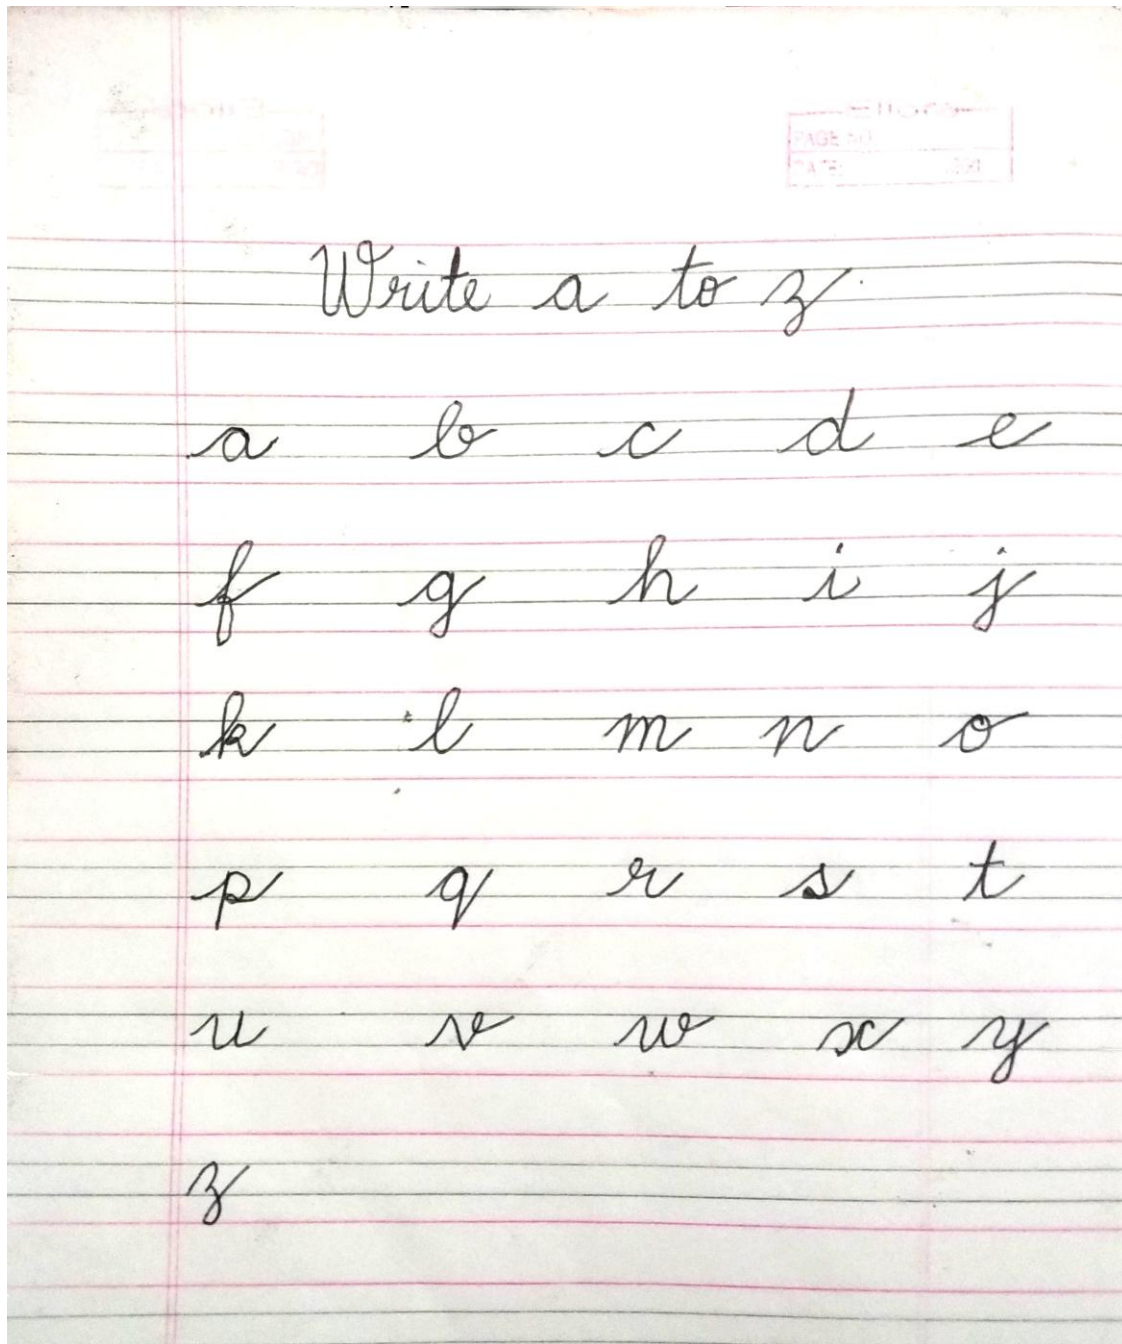 PAGE NO.
DATE:
Write a to z
a b c d e
f g h i j
k l m n o
p q r s t
u v w x y
z